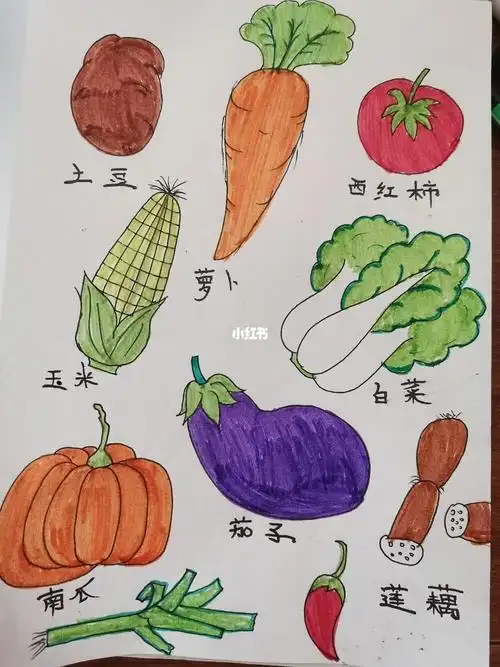 土豆
西红柿
萝卜
小红书
玉米
白菜
茄子
南瓜
莲藕